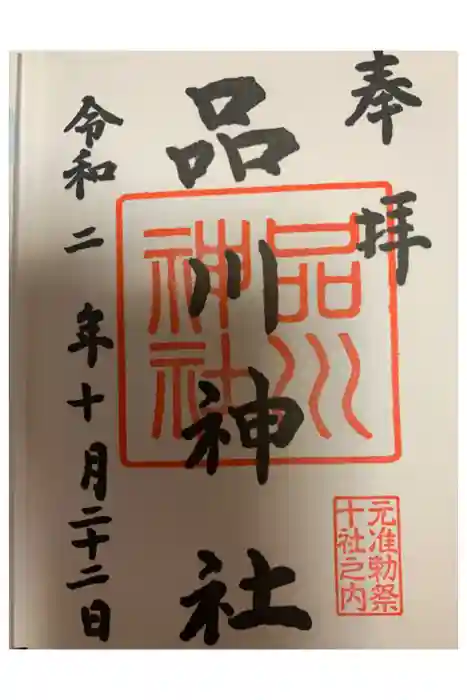 奉拝
品川神社
品川
神社
元准勅祭
十社之内
令和二年十月二十二日